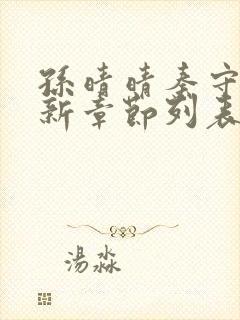 孫晴晴秦守
新章節列表
湯淼